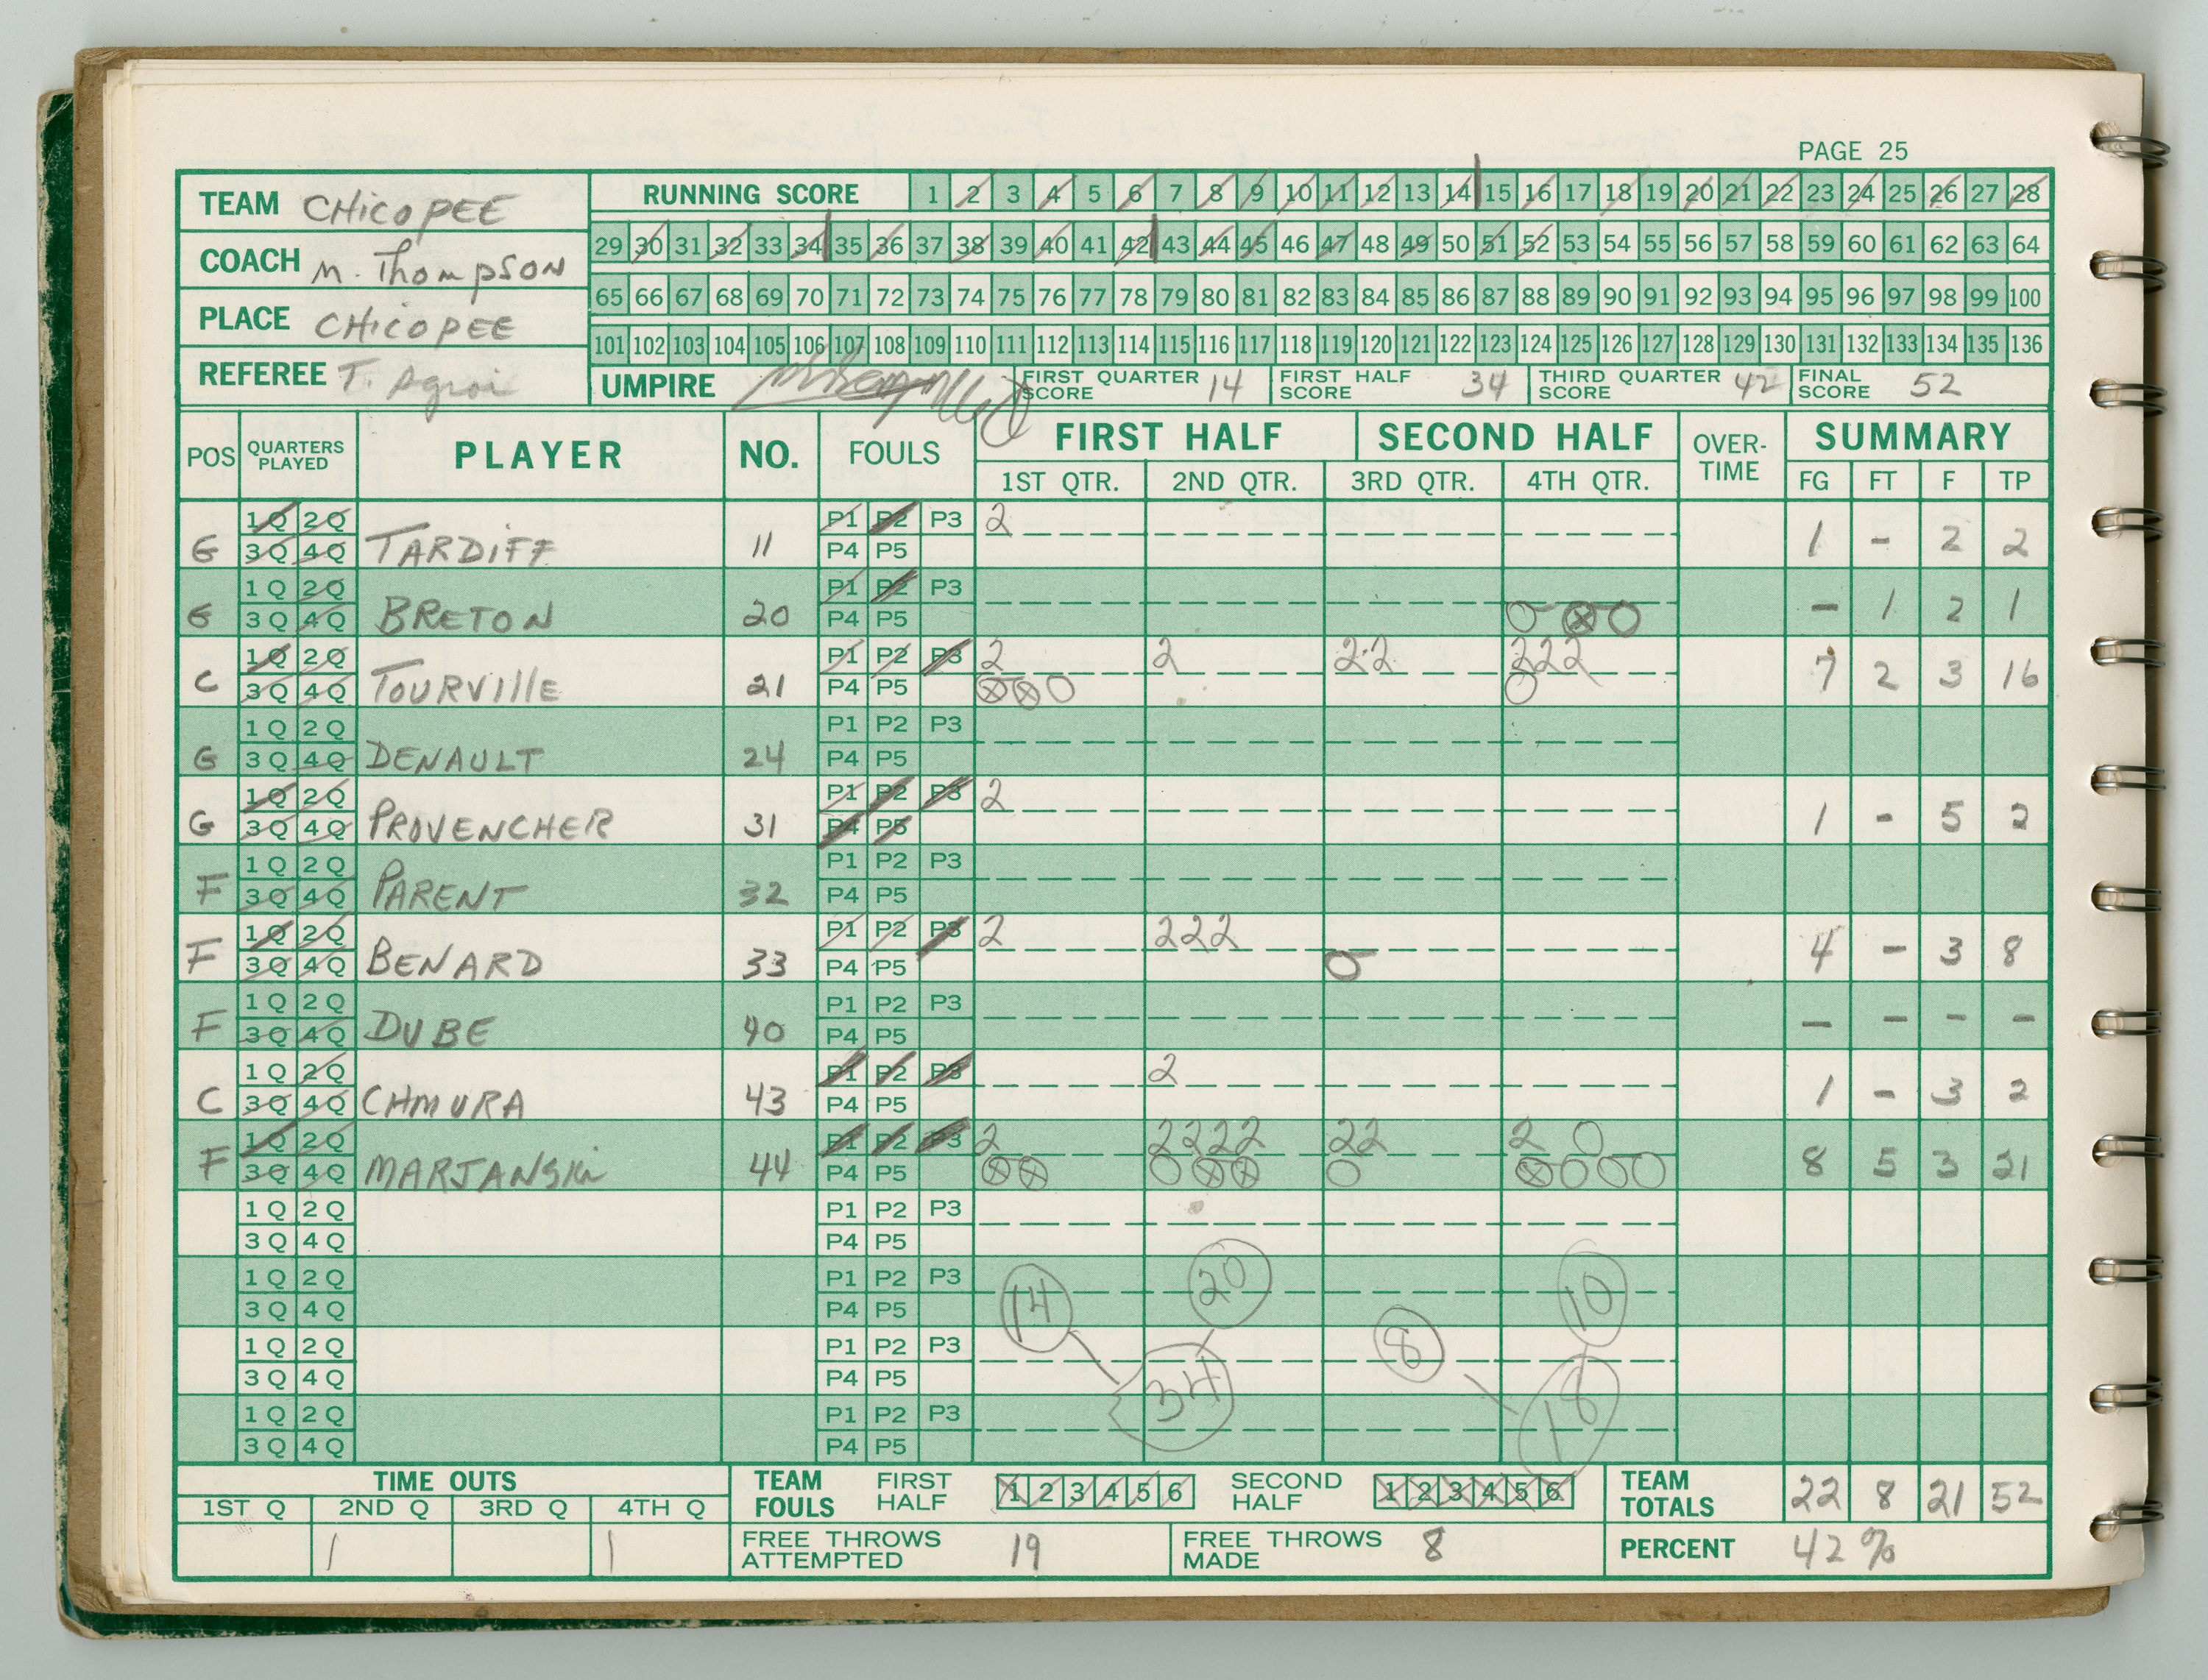 PAGE 25
TEAM CHICOPEE
COACH M. Thompson
PLACE CHICOPEE
REFEREE T.
RUNNING SCORE 1 2 3 4 5 6 7 8 9 10 11 12 13 14 15 16 17 18 19 20 21 22 23 24 25 26 27 28
29 30 31 32 33 34 35 36 37 38 39 40 41 42 43 44 45 46 47 48 49 50 51 52 53 54 55 56 57 58 59 60 61 62 63 64
65 66 67 68 69 70 71 72 73 74 75 76 77 78 79 80 81 82 83 84 85 86 87 88 89 90 91 92 93 94 95 96 97 98 99 100
101 102 103 104 105 106 107 108 109 110 111 112 113 114 115 116 117 118 119 120 121 122 123 124 125 126 127 128 129 130 131 132 133 134 135 136
UMPIRE FIRST QUARTER SCORE 14 FIRST HALF SCORE 34 THIRD QUARTER SCORE 42 FINAL SCORE 52
POS QUARTERS PLAYED PLAYER NO. FOULS FIRST HALF SECOND HALF OVER-TIME SUMMARY
1ST QTR. 2ND QTR. 3RD QTR. 4TH QTR. FG FT F TP
1Q 2Q P1 P2 P3 2
G 3Q 4Q TARDIFF 11 P4 P5 1 - 2 2
1Q 2Q P1 P2 P3
G 3Q 4Q BRETON 20 P4 P5 - 1 2 1
1Q 2Q P1 P2 P3 2 2 22 222
C 3Q 4Q TOURVIllE 21 P4 P5 7 2 3 16
1Q 2Q P1 P2 P3
G 3Q 4Q DENAULT 24 P4 P5
1Q 2Q P1 P2 P3 2
G 3Q 4Q PROVENCHER 31 P4 P5 1 - 5 2
1Q 2Q P1 P2 P3
F 3Q 4Q PARENT 32 P4 P5
1Q 2Q P1 P2 P3 2 222
F 3Q 4Q BENARD 33 P4 P5 4 - 3 8
1Q 2Q P1 P2 P3
F 3Q 4Q DUBE 40 P4 P5 - - - -
1Q 2Q P1 P2 P3 2
C 3Q 4Q CHMURA 43 P4 P5 1 - 3 2
1Q 2Q P1 P2 P3 2 2222 22 2
F 3Q 4Q MARJANSKi 44 P4 P5 8 5 3 21
1Q 2Q P1 P2 P3
3Q 4Q P4 P5
1Q 2Q P1 P2 P3 14 20 10
3Q 4Q P4 P5
1Q 2Q P1 P2 P3 8
3Q 4Q P4 P5 34 18
1Q 2Q P1 P2 P3
3Q 4Q P4 P5
TIME OUTS TEAM FOULS FIRST HALF 1 2 3 4 5 6 SECOND HALF 1 2 3 4 5 6 TEAM TOTALS 22 8 21 52
1ST Q 2ND Q 3RD Q 4TH Q
1 1 FREE THROWS ATTEMPTED 19 FREE THROWS MADE 8 PERCENT 42%